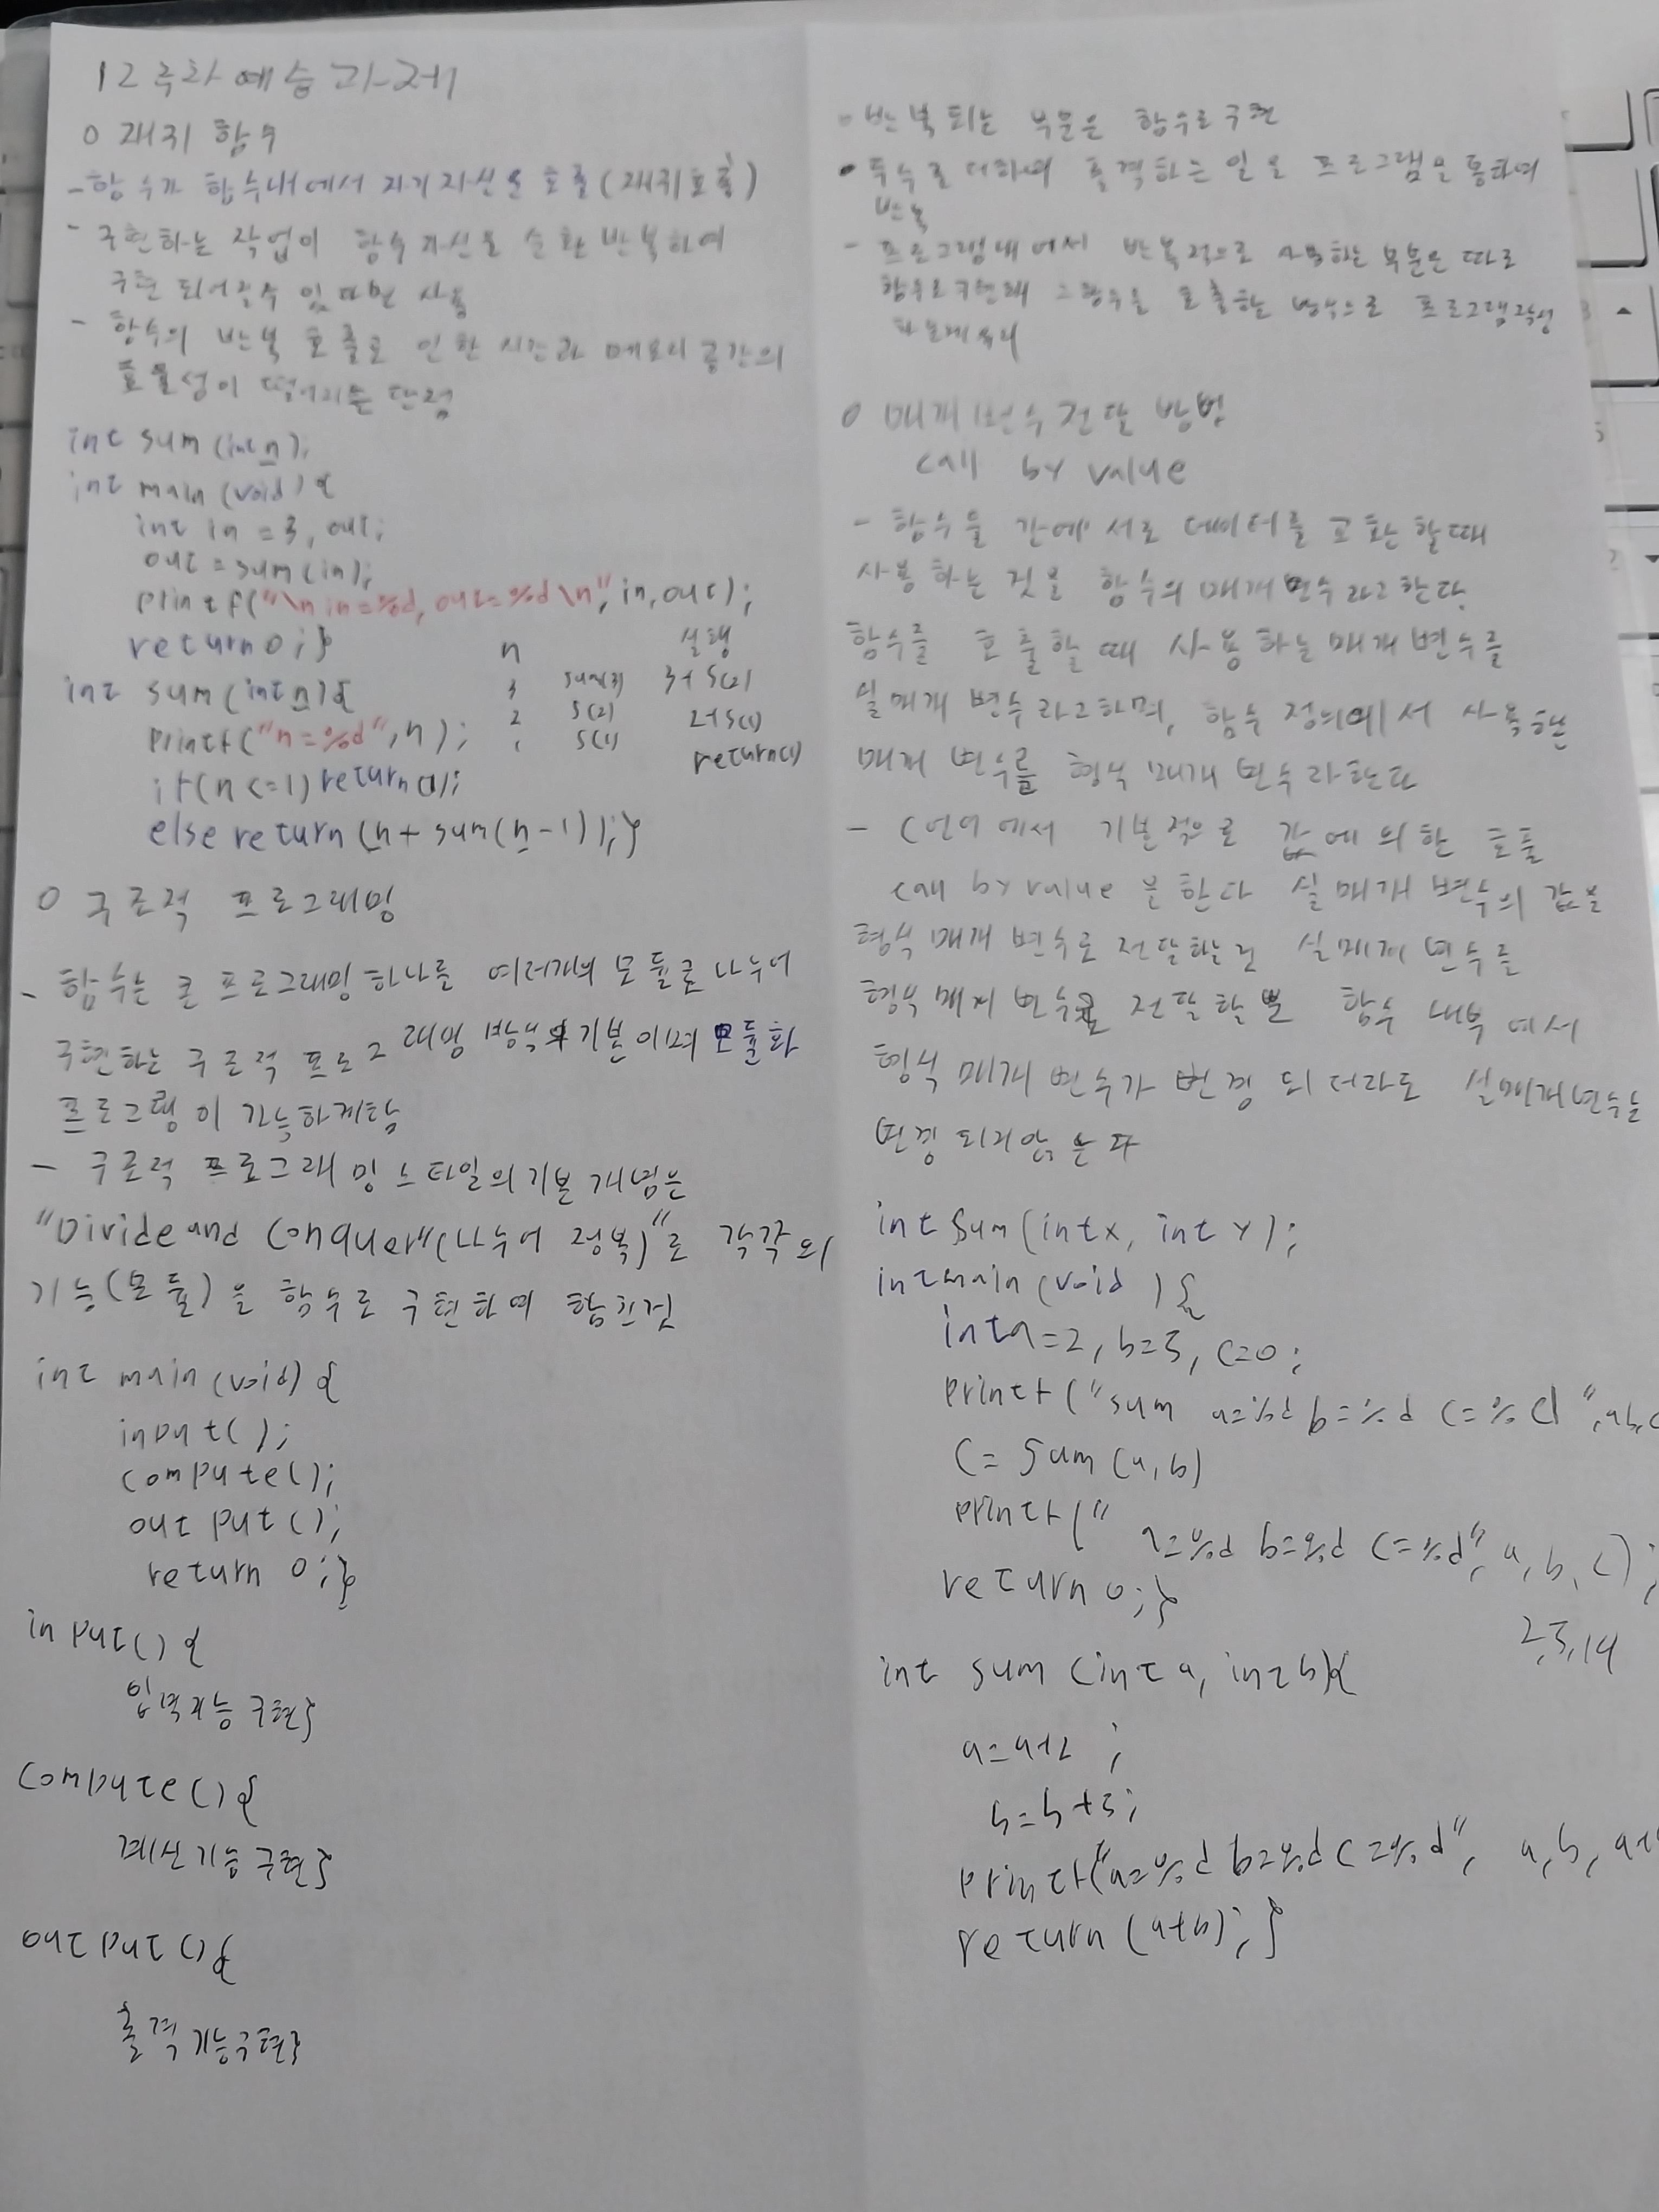 12주차 예습과제
o 재귀 함수
- 함수가 함수내에서 자기자신을 호출(재귀호출)
- 구현하는 작업이 함수자신을 순환 반복하여
구현 되어질수 있다면 사용
- 함수의 반복 호출로 인한 시간과 메모리 공간의
효율성이 떨어지는 단점
int sum (int n);
int main (void) {
int in = 3, out;
out = sum(in);
printf("\n in=%d, out=%d \n", in, out);
return 0; }
n 실행
3 sum(3) 3+S(2)
2 S(2) 2+S(1)
1 S(1) return(1)
int sum (int n){
printf("n=%d", n);
if(n<=1) return(1);
else return (n + sum(n-1)); }
o 구조적 프로그래밍
- 함수는 큰 프로그래밍 하나를 여러개의 모듈로 나누어
구현하는 구조적 프로그래밍 방식의 기본이며 모듈화
프로그램이 가능하게함
- 구조적 프로그래밍 스타일의 기본 개념은
"Divide and Conquer"(나누어 정복)"로 각각의
기능(모듈)을 함수로 구현하여 합친것
int main (void) {
input();
compute();
output();
return 0; }
input() {
입력기능 구현}
compute() {
계산기능 구현}
output() {
출력기능구현}
o 반복되는 부분은 함수로 구현
• 두수를 더하여 출력하는 일을 프로그램을 통하여
반복
- 프로그램내에서 반복적으로 사용하는 부분은 따로
함수로 구현해 그함수를 호출하는 방식으로 프로그램작성
o 매개변수 전달 방법
call by value
- 함수들 간에 서로 데이터를 교환 할때
사용하는 것을 함수의 매개변수라고한다.
함수를 호출할때 사용하는 매개변수를
실매개 변수라고하며, 함수 정의에서 사용한
매개 변수를 형식 매개 변수라한다
- C언어에서 기본적으로 값에 의한 호출
call by value 을한다 실매개 변수의 값을
형식 매개 변수로 전달하는 실매개 변수를
형식 매개 변수로 전달할뿐 함수 내부에서
형식 매개 변수가 변경 되더라도 실매개변수는
변경 되지않는다
int sum (int x, int y);
int main (void) {
int a=2, b=5, c=0;
printf ("sum a=%d b=%d c=%d", a,b,c
c = sum (a,b)
printf (" a=%d b=%d c=%d", a, b, c);
return 0; }
2,5,14
int sum (int a, int b){
a=a+2 ;
b=b+5;
printf("a=%d b=%d c=%d", a, b, a+b
return (a+b); }